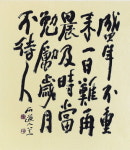 盛年不重
来一日難再
晨及時當
勉勵歲月
不待人